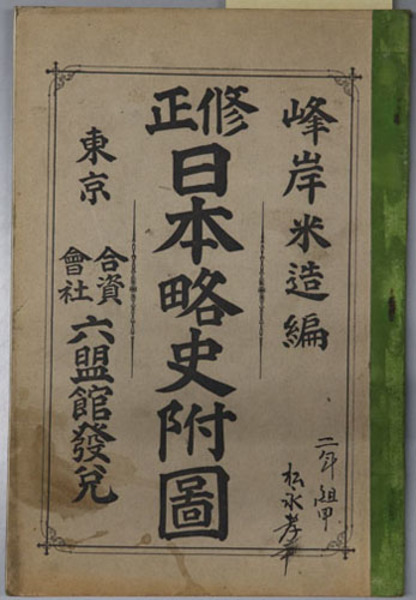 峰岸米造編
修正
日本略史附圖
東京
合資
會社
六盟館發兌
二年 組甲
松永孝